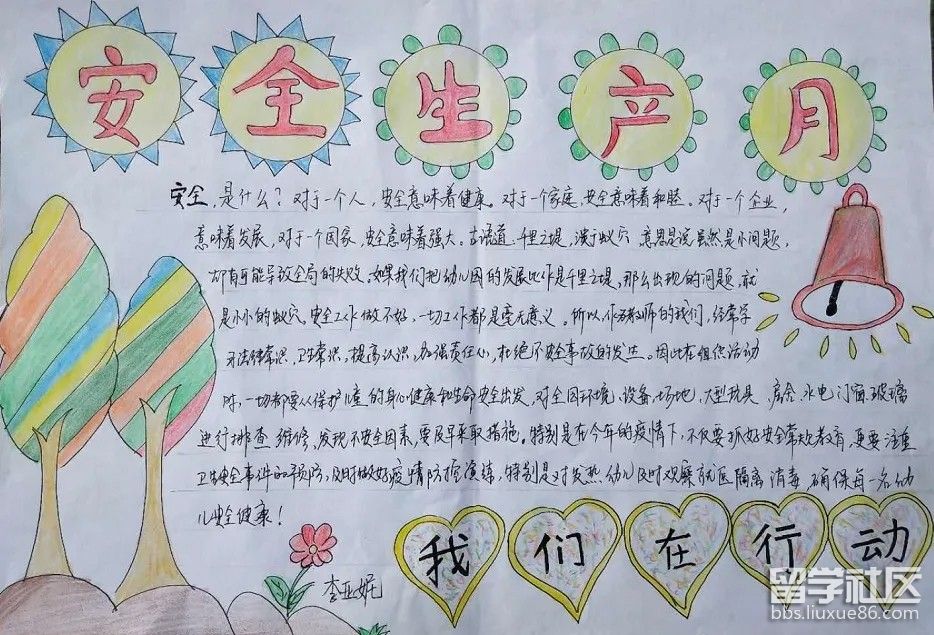 安全生产月
安全,是什么?对于一个人,安全意味着健康。对于一个家庭,安全意味着和睦。对于一个企业,
意味着发展,对于一个国家,安全意味着强大。古语道:千里之堤,溃于蚁穴 意思是说虽然是小问题,
却有可能导致全局的失败。如果我们把幼儿园的发展比作是千里之堤,那么出现的问题,就
是小小的蚁穴。安全工作做不好,一切工作都是毫无意义。所以,作为教师的我们,经常学
习法律常识、卫生常识,提高认识,加强责任心,杜绝不安全事故的发生。因此在组织活动
时,一切都要从保护儿童的身心健康和生命安全出发,对全园环境、设备、场地、大型玩具、房舍、水电门窗、玻璃
进行排查、维修、发现不安全因素,要及早采取措施。特别是在今年的疫情下,不仅要抓好安全常规教育,更要注重
卫生安全事件的预防,及时做好疫情防控演练,特别是对发热幼儿及时观察就医隔离消毒,确保每一名幼
儿安全健康!
李亚妮
我们在行动
留学社区
bbs.liuxue86.com